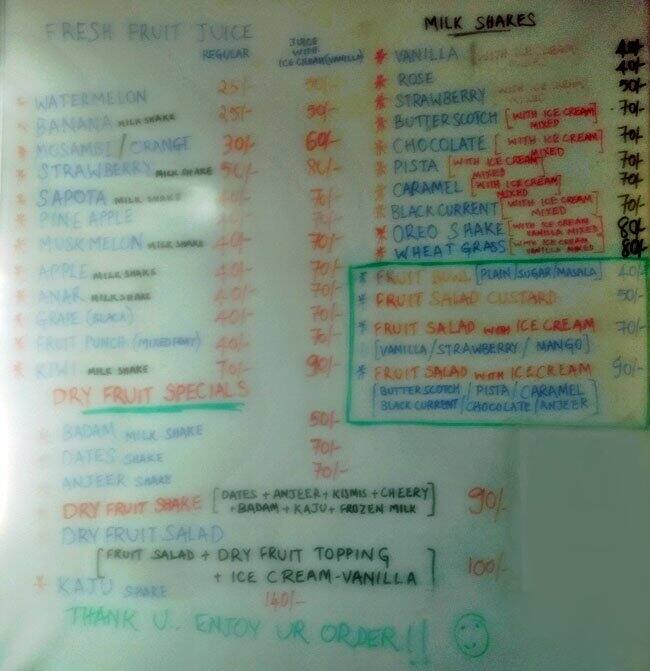 FRESH FRUIT JUICE
REGULAR
JUICE WITH ICE CREAM (VANILLA)
* WATERMELON 25/- 50/-
* BANANA MILK SHAKE 25/- 50/-
* MOSAMBI / ORANGE 30/- 60/-
* STRAWBERRY MILK SHAKE 50/- 80/-
* SAPOTA MILK SHAKE 40/- 70/-
* PINE APPLE 40/- 70/-
* MUSK MELON MILK SHAKE 40/- 70/-
* APPLE MILK SHAKE 40/- 70/-
* ANAR MILK SHAKE 40/- 70/-
* GRAPE (BLACK) 40/- 70/-
* FRUIT PUNCH 40/- 70/-
* KIWI MILK SHAKE 70/- 90/-
DRY FRUIT SPECIALS
BADAM MILK SHAKE 50/-
DATES SHAKE 70/-
ANJEER SHAKE 70/-
DRY FRUIT SHAKE [DATES + ANJEER + KISMIS + CHEERY
+ BADAM + KAJU + FROZEN MILK] 90/-
DRY FRUIT SALAD
[FRUIT SALAD + DRY FRUIT TOPPING
+ ICE CREAM-VANILLA] 100/-
* KAJU SHAKE 140/-
THANK U.. ENJOY UR ORDER!!
MILK SHAKES
* VANILLA [WITH ICE CREAM 40/-
* ROSE 40/-
* STRAWBERRY 50/-
* BUTTERSCOTCH [WITH ICE CREAM MIXED] 70/-
* CHOCOLATE [WITH ICE CREAM MIXED] 70/-
* PISTA [WITH ICE CREAM MIXED] 70/-
* CARAMEL [WITH ICE CREAM MIXED] 70/-
* BLACK CURRENT [WITH ICE CREAM MIXED] 70/-
* OREO SHAKE [WITH ICE CREAM VANILLA MIXED] 80/-
* WHEAT GRASS [WITH ICE CREAM VANILLA MIXED] 80/-
* FRUIT BOWL [PLAIN/SUGAR/MASALA] 40/-
* FRUIT SALAD CUSTARD 50/-
* FRUIT SALAD WITH ICE CREAM 70/-
[VANILLA/STRAWBERRY/MANGO]
* FRUIT SALAD WITH ICE CREAM 90/-
[BUTTERSCOTCH/PISTA/CARAMEL
BLACK CURRENT/CHOCOLATE/ANJEER]